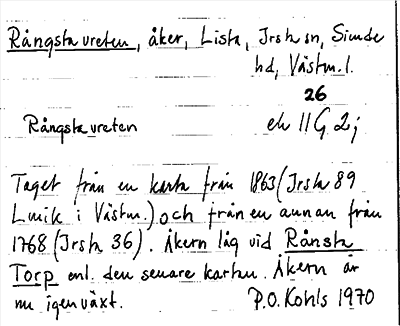 Rångsta vreten, åker, Lista, Irsta sn, Siende
hd, Västm. l.
26
Rångsta vreten ek 11 G 2j
Taget från en karta från 1863 (Irsta 89
Lmk i Västm.) och från en annan från
1768 (Irsta 36). Åkern låg vid Rånsta
Torp enl. den senare kartan. Åkern är
nu igenväxt. P.O. Kohls 1970